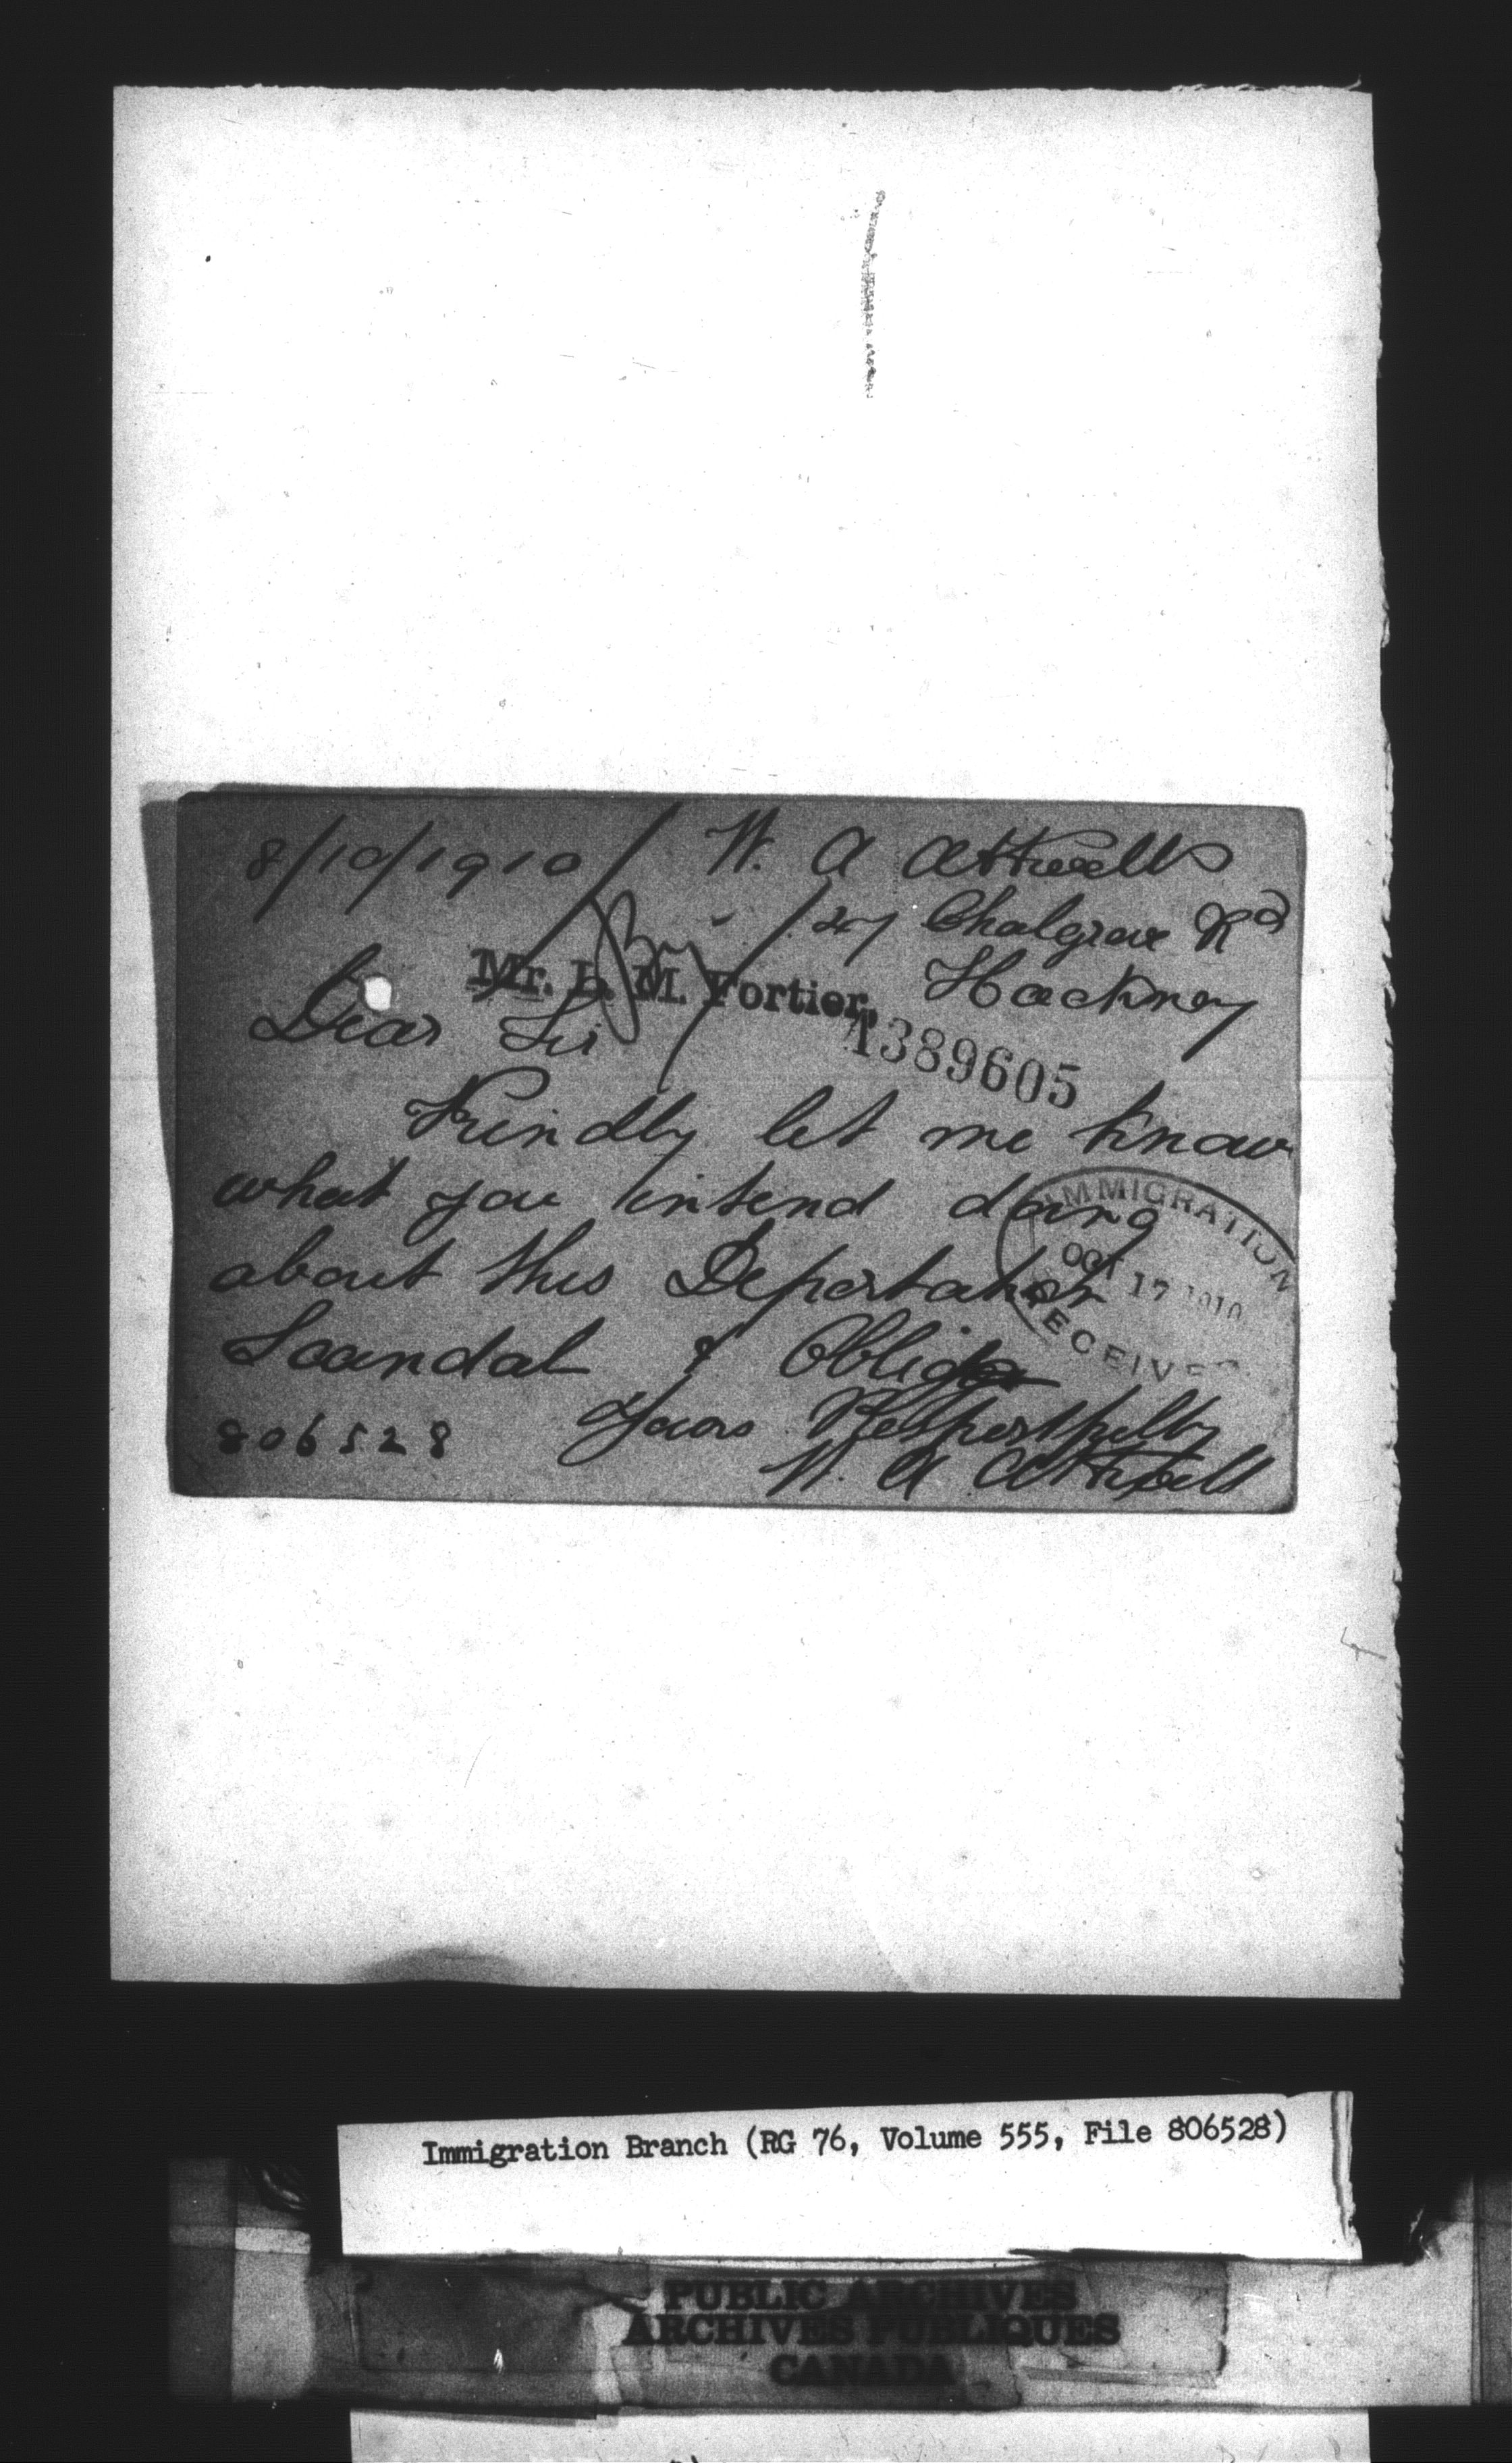 8/10/1910
W. A Attwells
27 Chalgrove Rd
Hackney
Mr. L. M. Fortier,
1389605
Dear Sir
Kindly let me know
what you intend doing
about this Deportation
Scandal & Oblige
Yours Respectfully
W. A Attwell
806528
IMMIGRATION
OCT 17 1910
RECEIVED
Immigration Branch (RG 76, Volume 555, File 806528)
PUBLIC ARCHIVES
ARCHIVES PUBLIQUES
CANADA